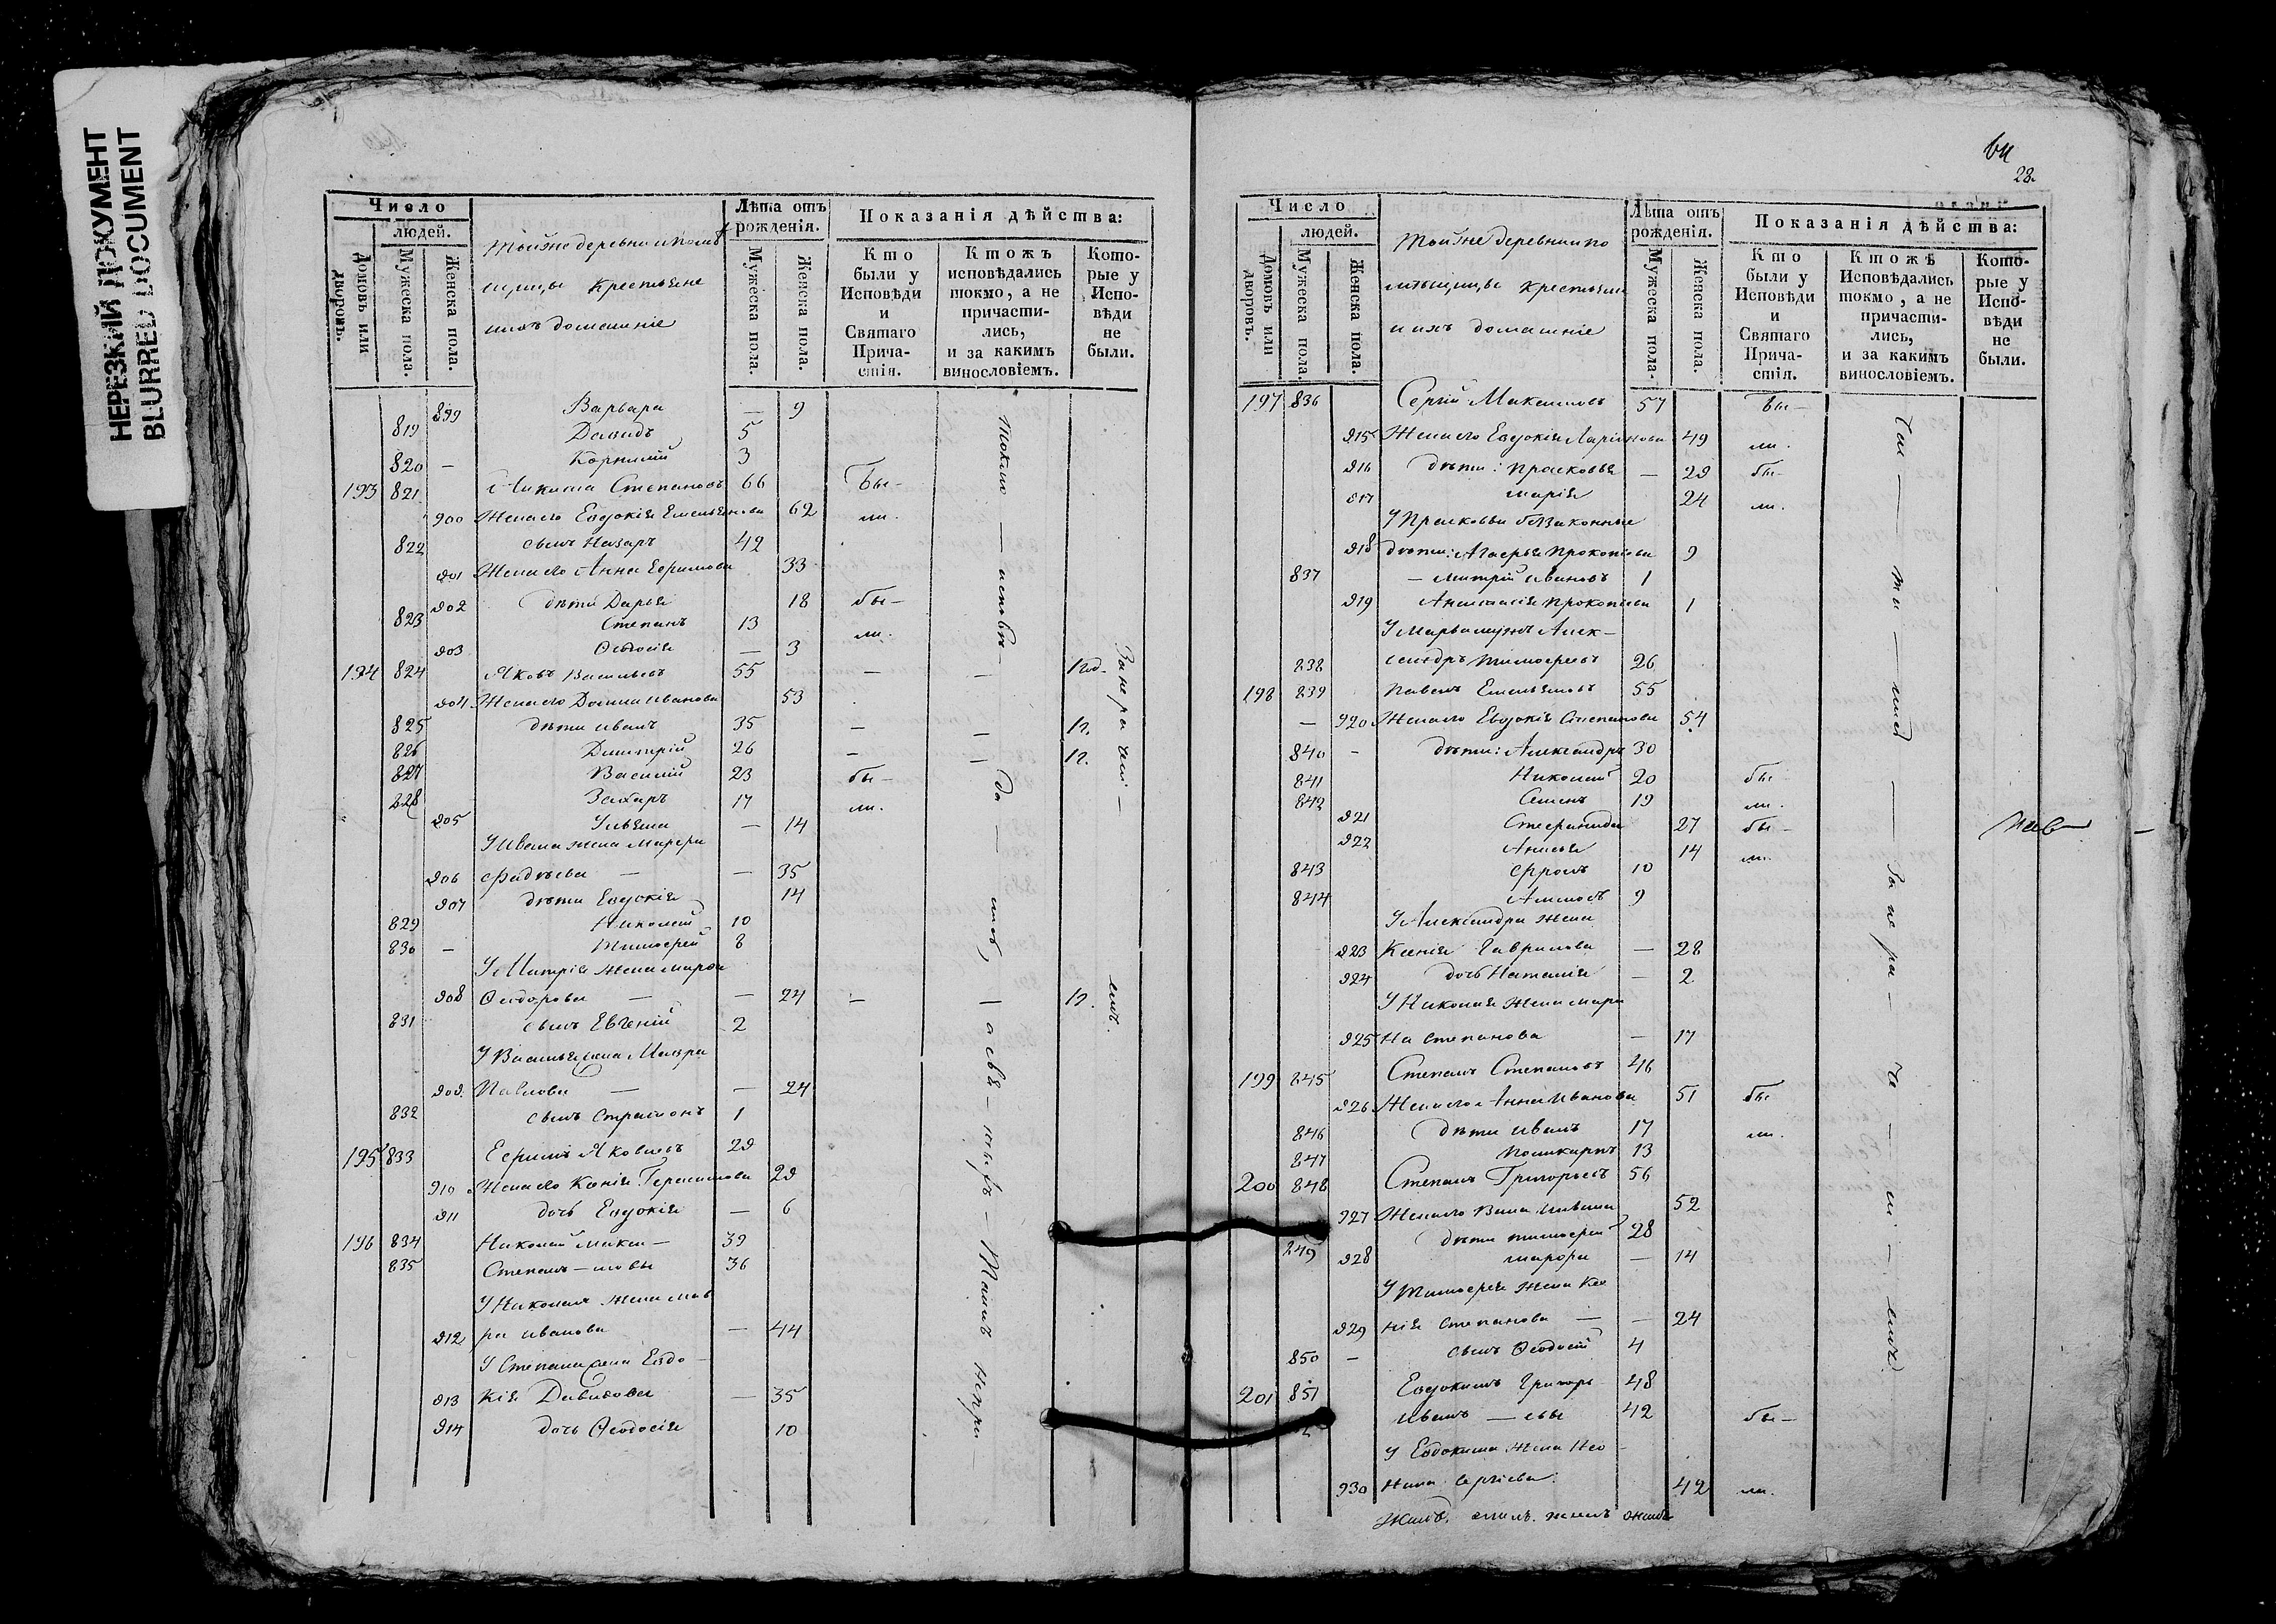 НЕРЕЗКИЙ ДОКУМЕНТ
BLURRED DOCUMENT
Число
людей.
Домовъ или дворовъ.
Мужеска пола.
Женска пола.
Тойже деревни
Крестьяне
ихъ домашніе
Лѣта отъ рожденія.
Мужеска пола.
Женска пола.
Показанія дѣйства:
Кто были у Исповѣди и Святаго Причастія.
Ктожъ исповѣдались токмо, а не причастились, и за какимъ винословіемъ.
Которые у Исповѣди не были.
899 Варвара — 9
819 Давидъ 5
820 — Корнилій 3
193 821 Никита Степановъ 66 бы-
900 Жена его Евдокія Емельянова 62 ли.
822 сынъ Назаръ 42
901 Жена его Анна Ефимова 33
902 дѣти Дарья 18 бы-
823 Степанъ 13 ли.
903 Ѳеодосія — 3
194 824 Яковъ Васильевъ 55 — —
904 Жена его Домна Иванова 53
825 дѣти Иванъ 35 — —
826 Димитрій 26 — —
827 Василій 23 бы-
828 Захаръ 17 ли.
905 Ульяна — 14
У Ивана жена Марфа
906 Фадѣева — — 35
907 дѣти Евдокія 14
829 Николай 10
830 — Тимофей 8
У Митрія жена Марѳа
908 Ѳеодорова — — 24 — —
831 сынъ Евгеній 2
У Василья жена Мавра
909 Павлова — — 24
832 сынъ Спиридонъ 1
195 833 Ефимъ Яковлевъ 29
910 Жена его Ксенія Герасимова 29
911 дочь Евдокія — 6
196 834 Николай Макси — 39
835 Степанъ — мовы 36
У Николая жена Мав
912 ра Иванова — 44
У Степана жена Евдо-
913 кія Давидова — 35
914 дочь Ѳеодосія 10
За нераченіемъ.
28.
Число
людей.
Домовъ или дворовъ.
Мужеска пола.
Женска пола.
Тойже деревни по
мѣщицы крестьяне
и ихъ домашніе
Лѣта отъ рожденія.
Мужеска пола.
Женска пола.
Показанія дѣйства:
Кто были у Исповѣди и Святаго Причастія.
Ктожъ Исповѣдались токмо, а не причастились, и за какимъ винословіемъ.
Которые у Исповѣди не были.
197 836 Сергій Максимовъ 57 бы-
915 Жена его Евдокія Ларіонова 49 ли.
916 дѣти: Прасковья — 29 бы-
917 Марія 24 ли.
У Прасковьи беззаконные
918 дѣти: Агафья Прокопіева 9
837 — Митрій Ивановъ 1
919 Анастасія Прокопіева 1
У Марьи мужъ Алек-
838 сандръ Тимофеевъ 26
198 839 Павелъ Емельяновъ 55
— 920 Жена его Евдокія Степанова 54
840 — дѣти: Александръ 30
841 Николай 20 бы
842 Семенъ 19 ли.
921 Стефанида 27 бы-
922 Анисья 14 ли.
843 Фролъ 10
844 Аммосъ 9
У Александра жена
923 Ксенія Гаврилова — 28
924 дочь Наталія — 2
У Николая жена Мари
925 на Степанова — 17
199 845 Степанъ Степановъ 46
926 Жена его Анна Иванова 51 бы
846 дѣти Иванъ 17 ли.
847 Поликарпъ 13
200 848 Степанъ Григорьевъ 56
927 Жена его 52
849 дѣти Тимофей 28
928 Марфа — 14
У Тимофея жена Ксе
929 нія Степанова — — 24
850 — сынъ Ѳеодосій 4
201 851 Евдокимъ Григорь 48
2 Иванъ — евы 42 бы-
У Евдокима жена Нео-
930 нила Сергіева 42 ли.
За нераченіемъ.